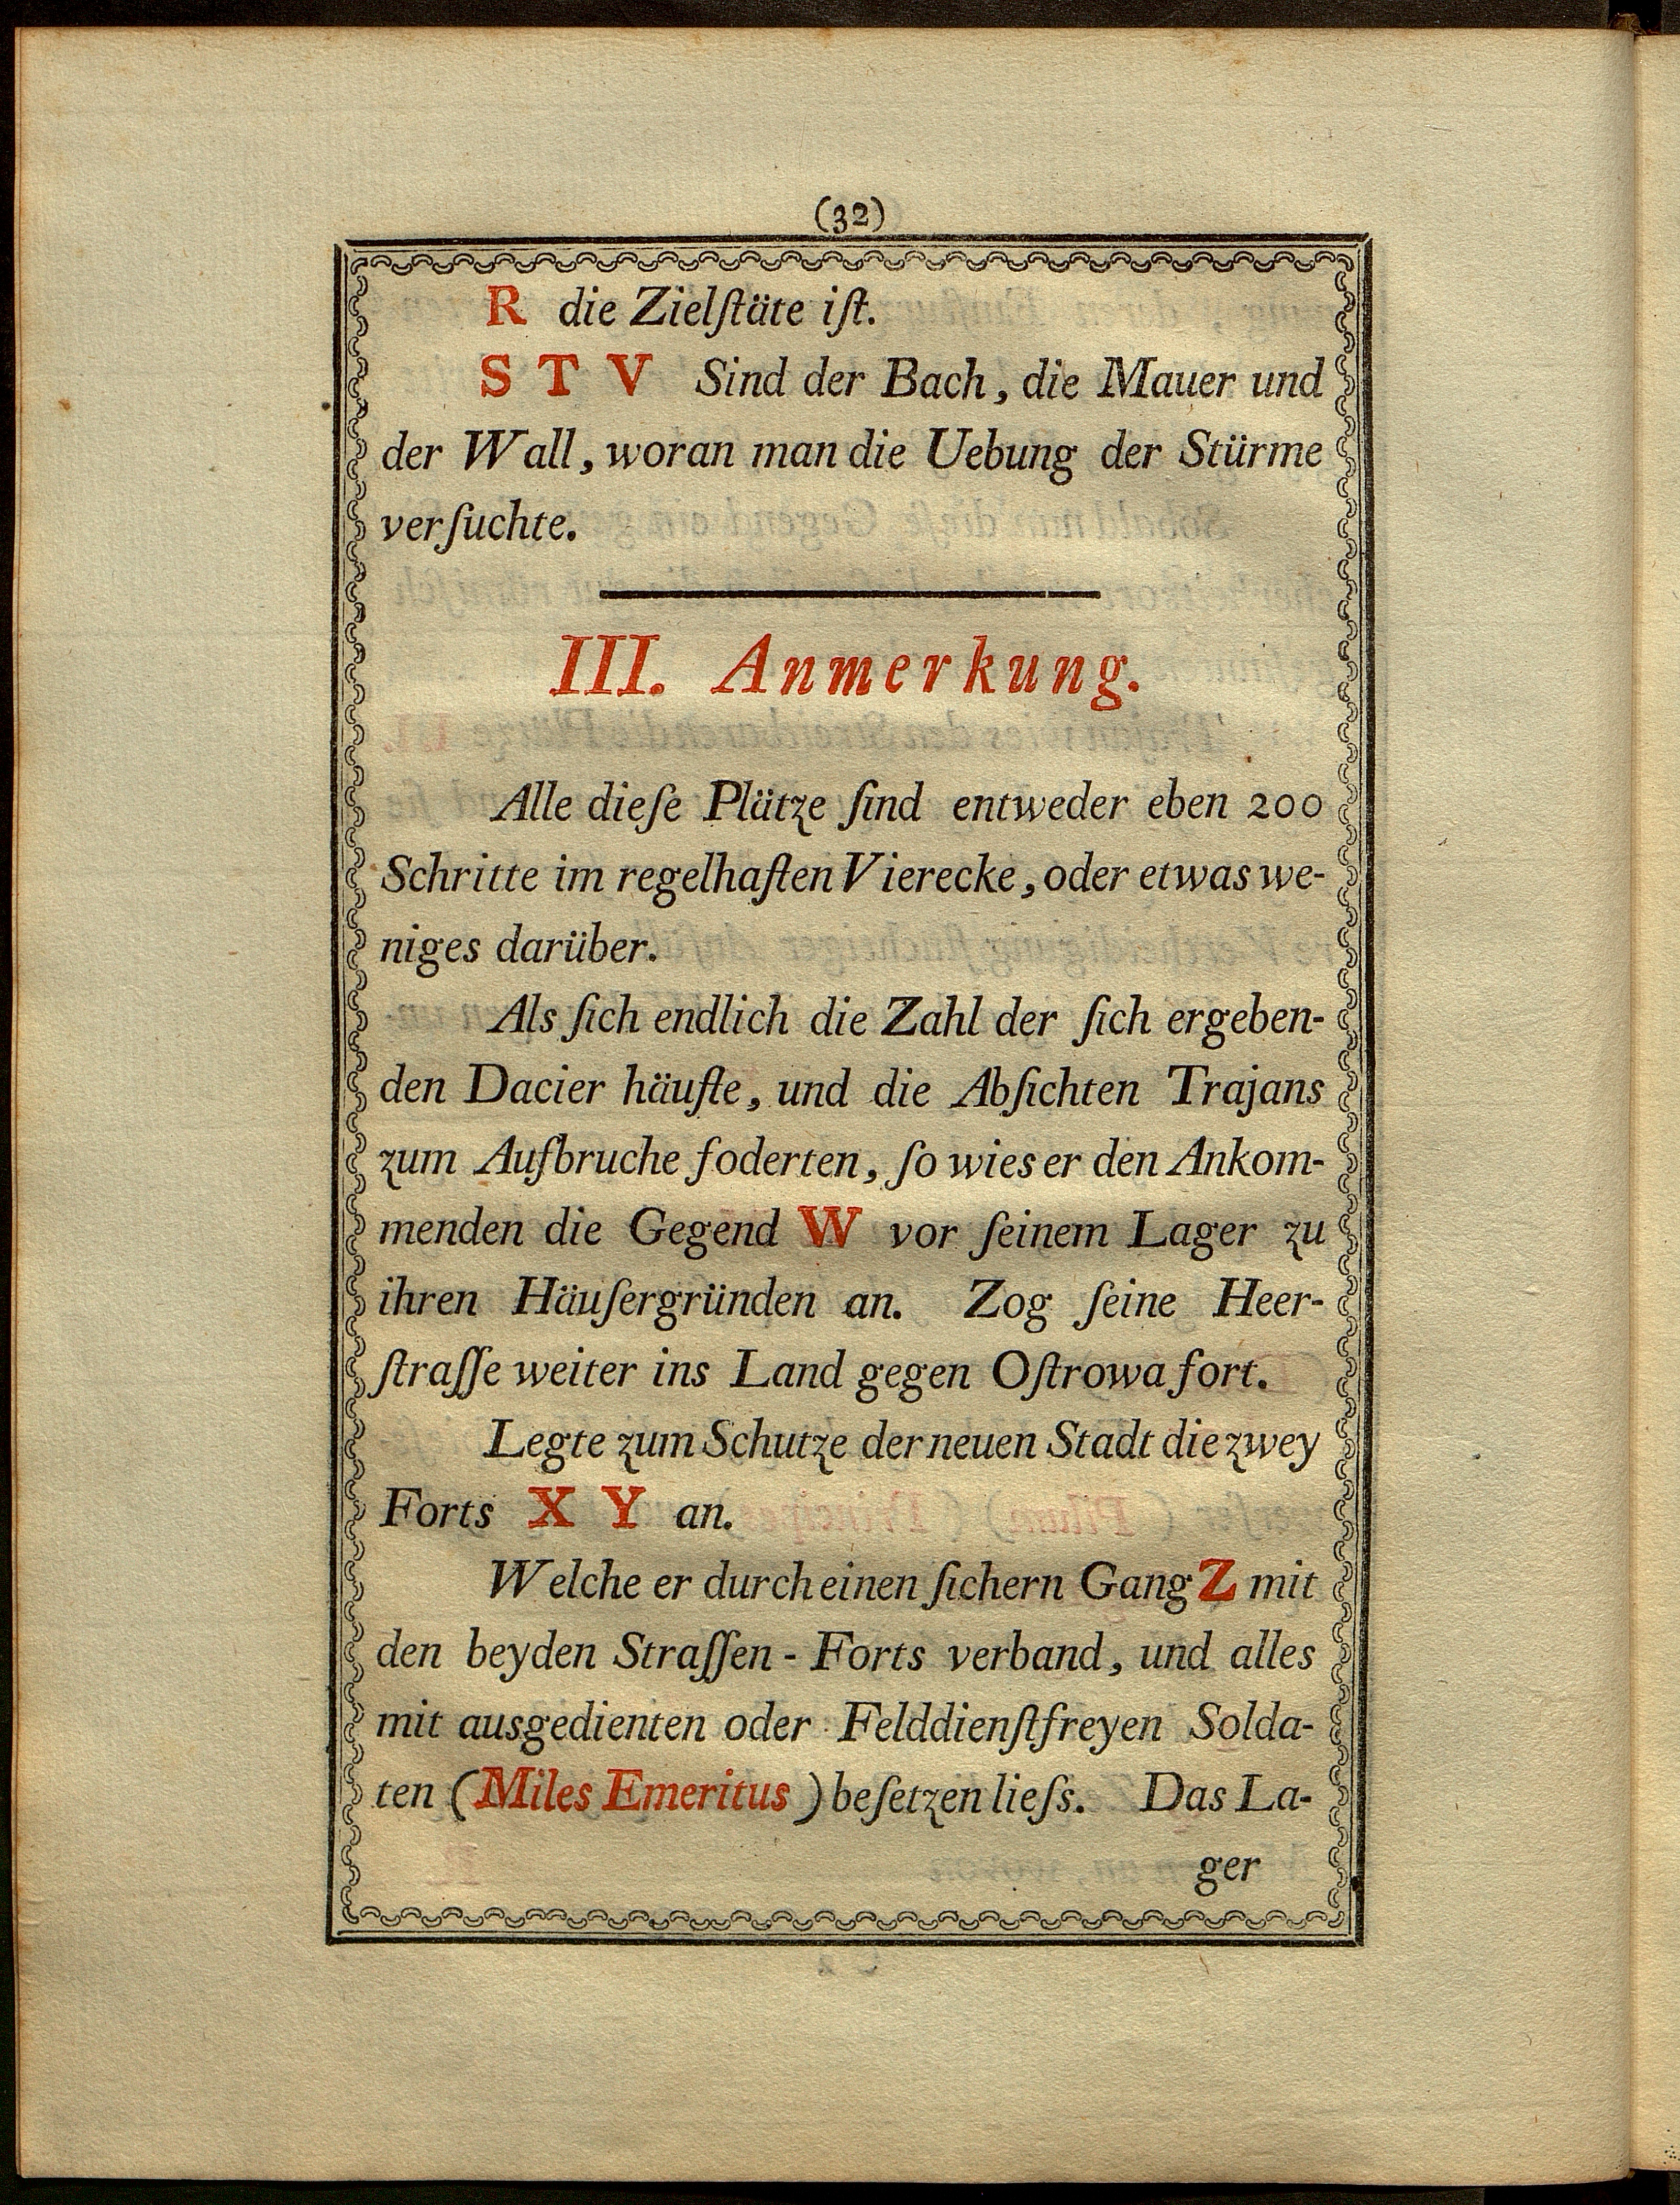 (32)
R die Zielſtäte iſt.
S T V Sind der Bach, die Mauer und
der Wall, woran man die Uebung der Stürme
verſuchte.
III. Anmerkung.
Alle dieſe Plätze ſind entweder eben 200
Schritte im regelhaften Vierecke, oder etwas we-
niges darüber.
Als ſich endlich die Zahl der ſich ergeben-
den Dacier häufte, und die Abſichten Trajans
zum Aufbruche foderten, ſo wies er den Ankom-
menden die Gegend W vor ſeinem Lager zu
ihren Häuſergründen an. Zog ſeine Heer-
ſtraſſe weiter ins Land gegen Oſtrowa fort.
Legte zum Schutze der neuen Stadt die zwey
Forts X Y an.
Welche er durch einen ſichern Gang Z mit
den beyden Straſſen - Forts verband, und alles
mit ausgedienten oder Felddienſtfreyen Solda-
ten (Miles Emeritus) beſetzen lieſs. Das La-
ger